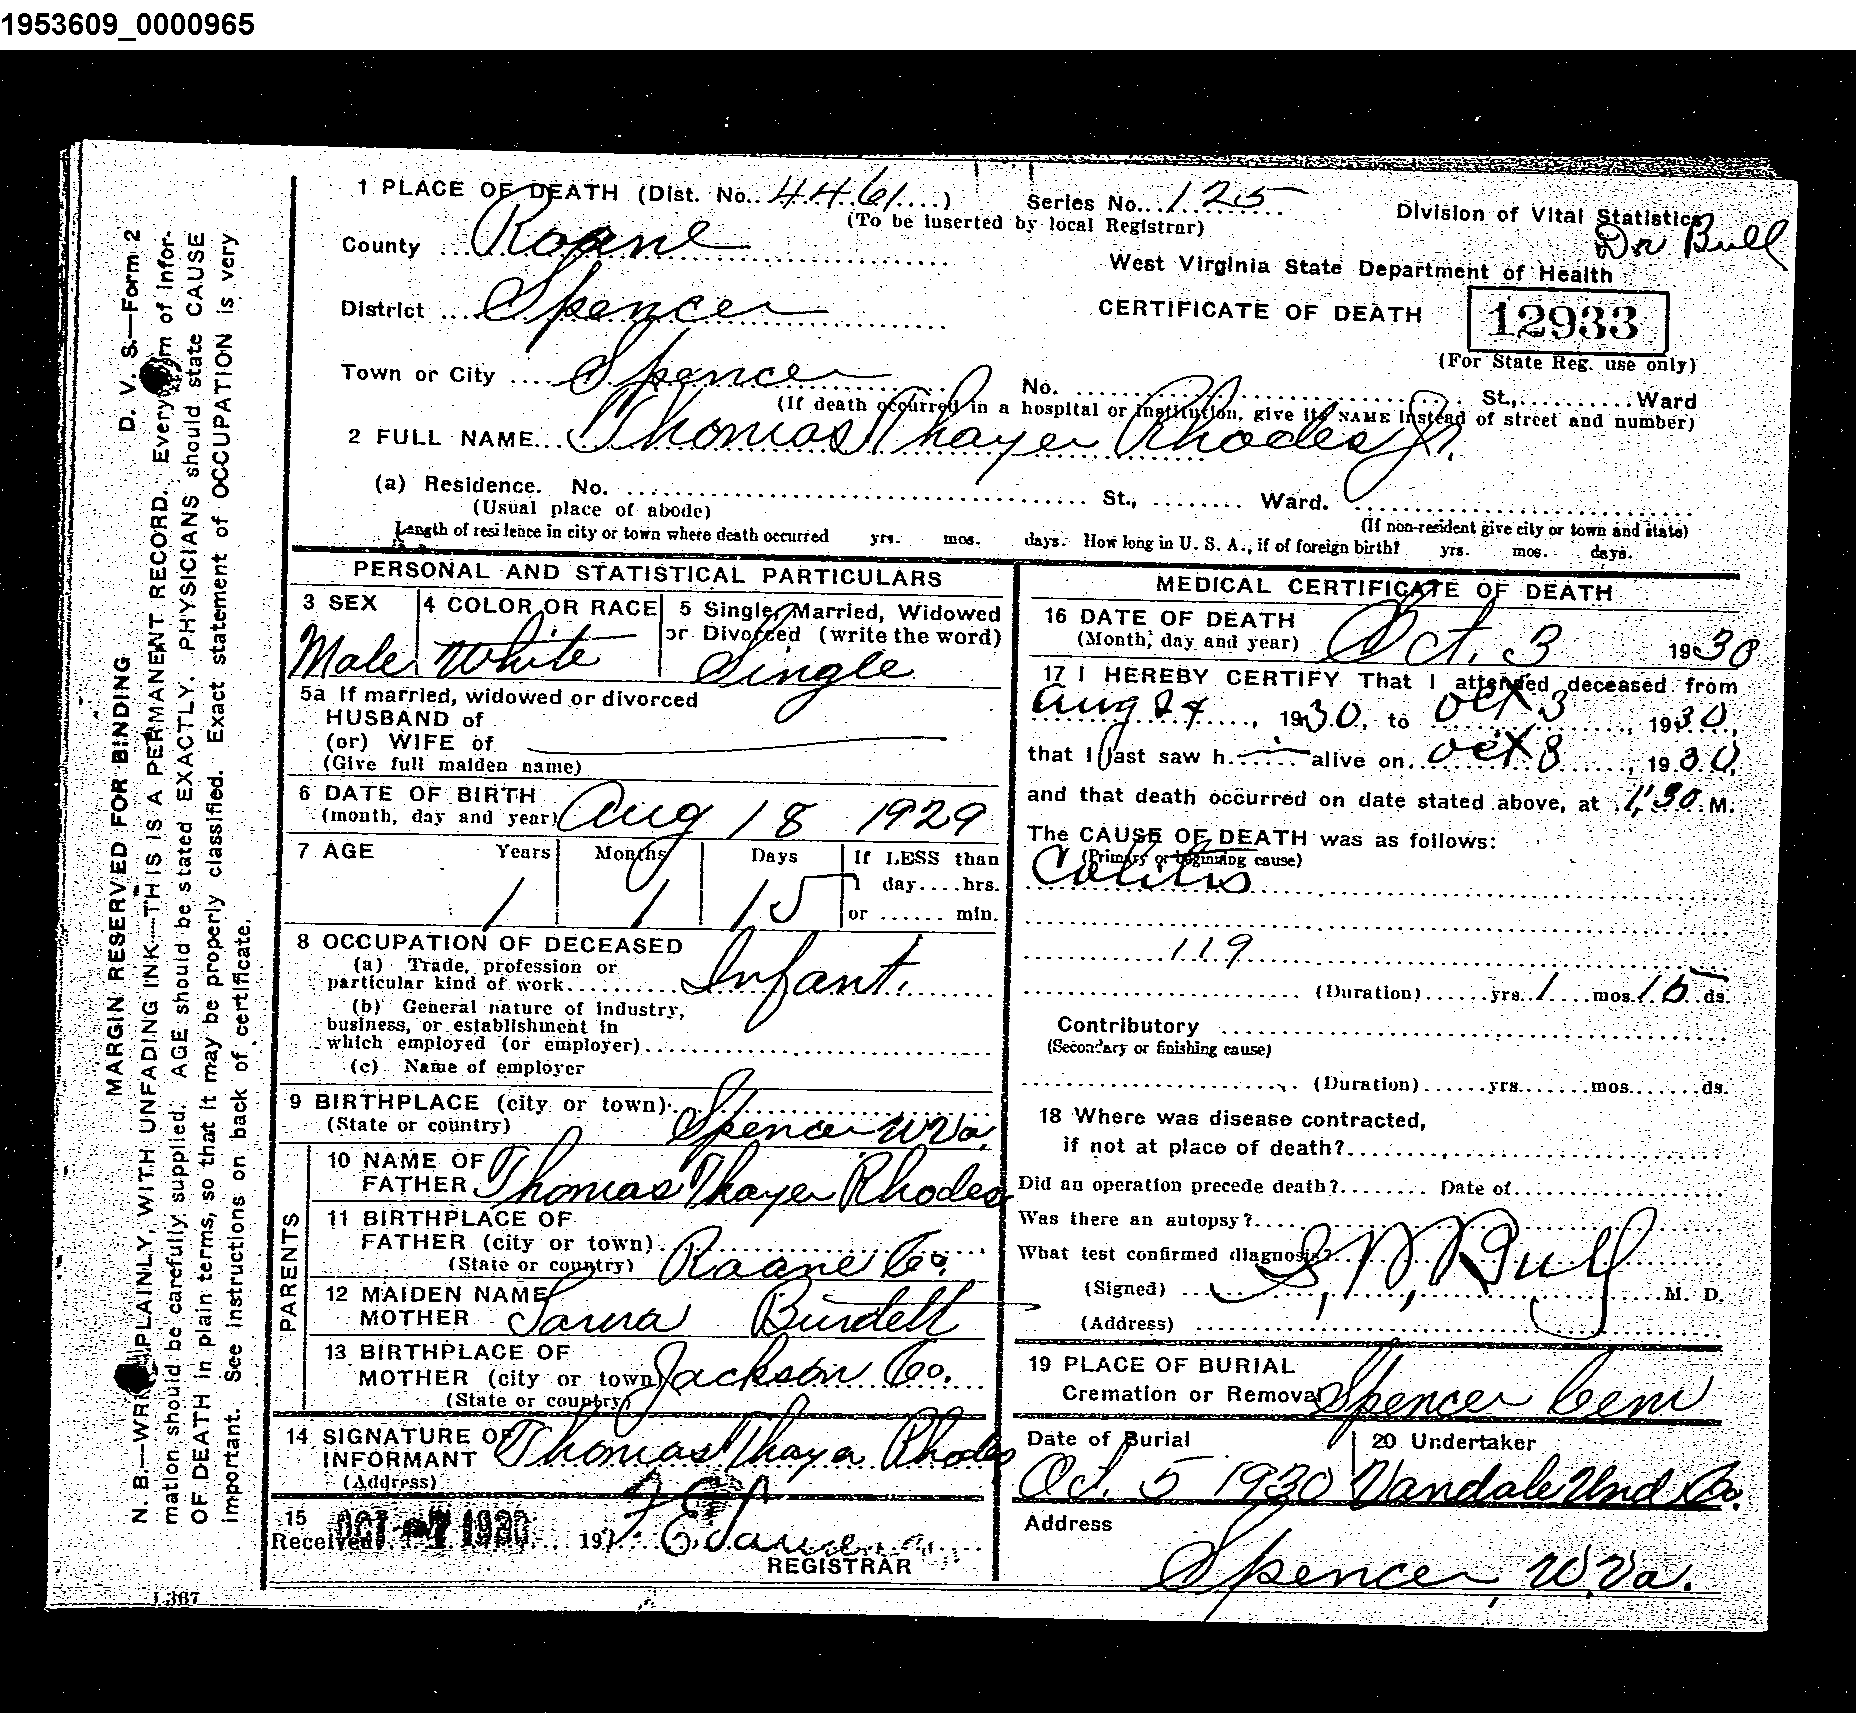 1953609_0000965
1 PLACE OF DEATH (Dist. No. 4461) Series No. 125 Division of Vital Statistics
(To be inserted by local Registrar) Dr Bull
County Roane
West Virginia State Department of Health
District Spencer CERTIFICATE OF DEATH 12933
(For State Reg. use only)
Town or City Spencer No. St., Ward
(If death occurred in a hospital or institution, give its NAME instead of street and number)
2 FULL NAME Thomas Thayer Rhodes Jr.
(a) Residence. No. St., Ward.
(Usual place of abode) (If non-resident give city or town and state)
Length of residence in city or town where death occurred yrs. mos. days. How long in U. S. A., if of foreign birth? yrs. mos. days.
PERSONAL AND STATISTICAL PARTICULARS
3 SEX 4 COLOR OR RACE 5 Single, Married, Widowed
or Divorced (write the word)
Male White Single
5a If married, widowed or divorced
HUSBAND of
(or) WIFE of
(Give full maiden name)
6 DATE OF BIRTH
(month, day and year) Aug 18 1929
7 AGE Years Months Days If LESS than
1 day....hrs.
1 1 15 or ...... min.
8 OCCUPATION OF DECEASED
(a) Trade, profession or
particular kind of work Infant.
(b) General nature of industry,
business, or establishment in
which employed (or employer)
(c) Name of employer
9 BIRTHPLACE (city or town)
(State or country) Spencer W Va.
PARENTS
10 NAME OF
FATHER Thomas Thayer Rhodes
11 BIRTHPLACE OF
FATHER (city or town)
(State or country) Roane Co.
12 MAIDEN NAME
MOTHER Burdett
13 BIRTHPLACE OF
MOTHER (city or town) Jackson Co.
(State or country)
14 SIGNATURE OF
INFORMANT Thomas Thayer Rhodes
(Address)
15
Received OCT 1930 19
REGISTRAR
MEDICAL CERTIFICATE OF DEATH
16 DATE OF DEATH
(Month, day and year) Oct. 3 1930
17 I HEREBY CERTIFY That I attended deceased from
Aug 24, 1930, to Oct 3, 1930,
that I last saw h alive on Oct 8, 1930,
and that death occurred on date stated above, at 1:30 M.
The CAUSE OF DEATH was as follows:
(Primary or beginning cause)
Colitis
119
(Duration) yrs. 1 mos. 15 ds.
Contributory
(Secondary or finishing cause)
(Duration) yrs. mos. ds.
18 Where was disease contracted,
if not at place of death?
Did an operation precede death? Date of
Was there an autopsy?
What test confirmed diagnosis?
(Signed) Bull M. D.
(Address)
19 PLACE OF BURIAL
Cremation or Removal Spencer Cem
Date of Burial 20 Undertaker
Oct. 5 1930 Vandale Und Co.
Address
Spencer, W. Va.
D. V. S.—Form 2
MARGIN RESERVED FOR BINDING
N. B.—WRITE PLAINLY, WITH UNFADING INK—THIS IS A PERMANENT RECORD. Every item of infor-
mation should be carefully supplied. AGE should be stated EXACTLY. PHYSICIANS should state CAUSE
OF DEATH in plain terms, so that it may be properly classified. Exact statement of OCCUPATION is very
important. See instructions on back of certificate.